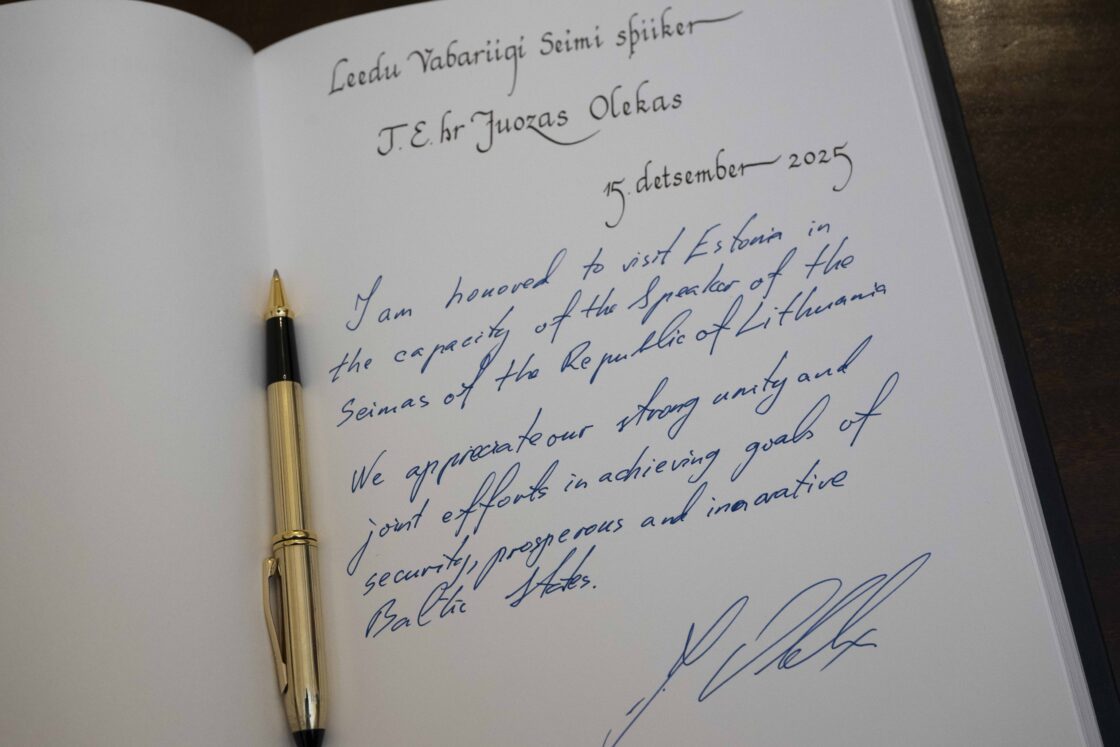 Leedu Vabariigi Seimi spiiker
T. E. hr Juozas Olekas
15. detsember 2025
I am honored to visit Estonia in
the capacity of the Speaker of the
Seimas of the Republic of Lithuania
We appreciate our strong unity and
joint efforts in achieving goals of
security, prosperous and inovative
Baltic States.
J. Olekas